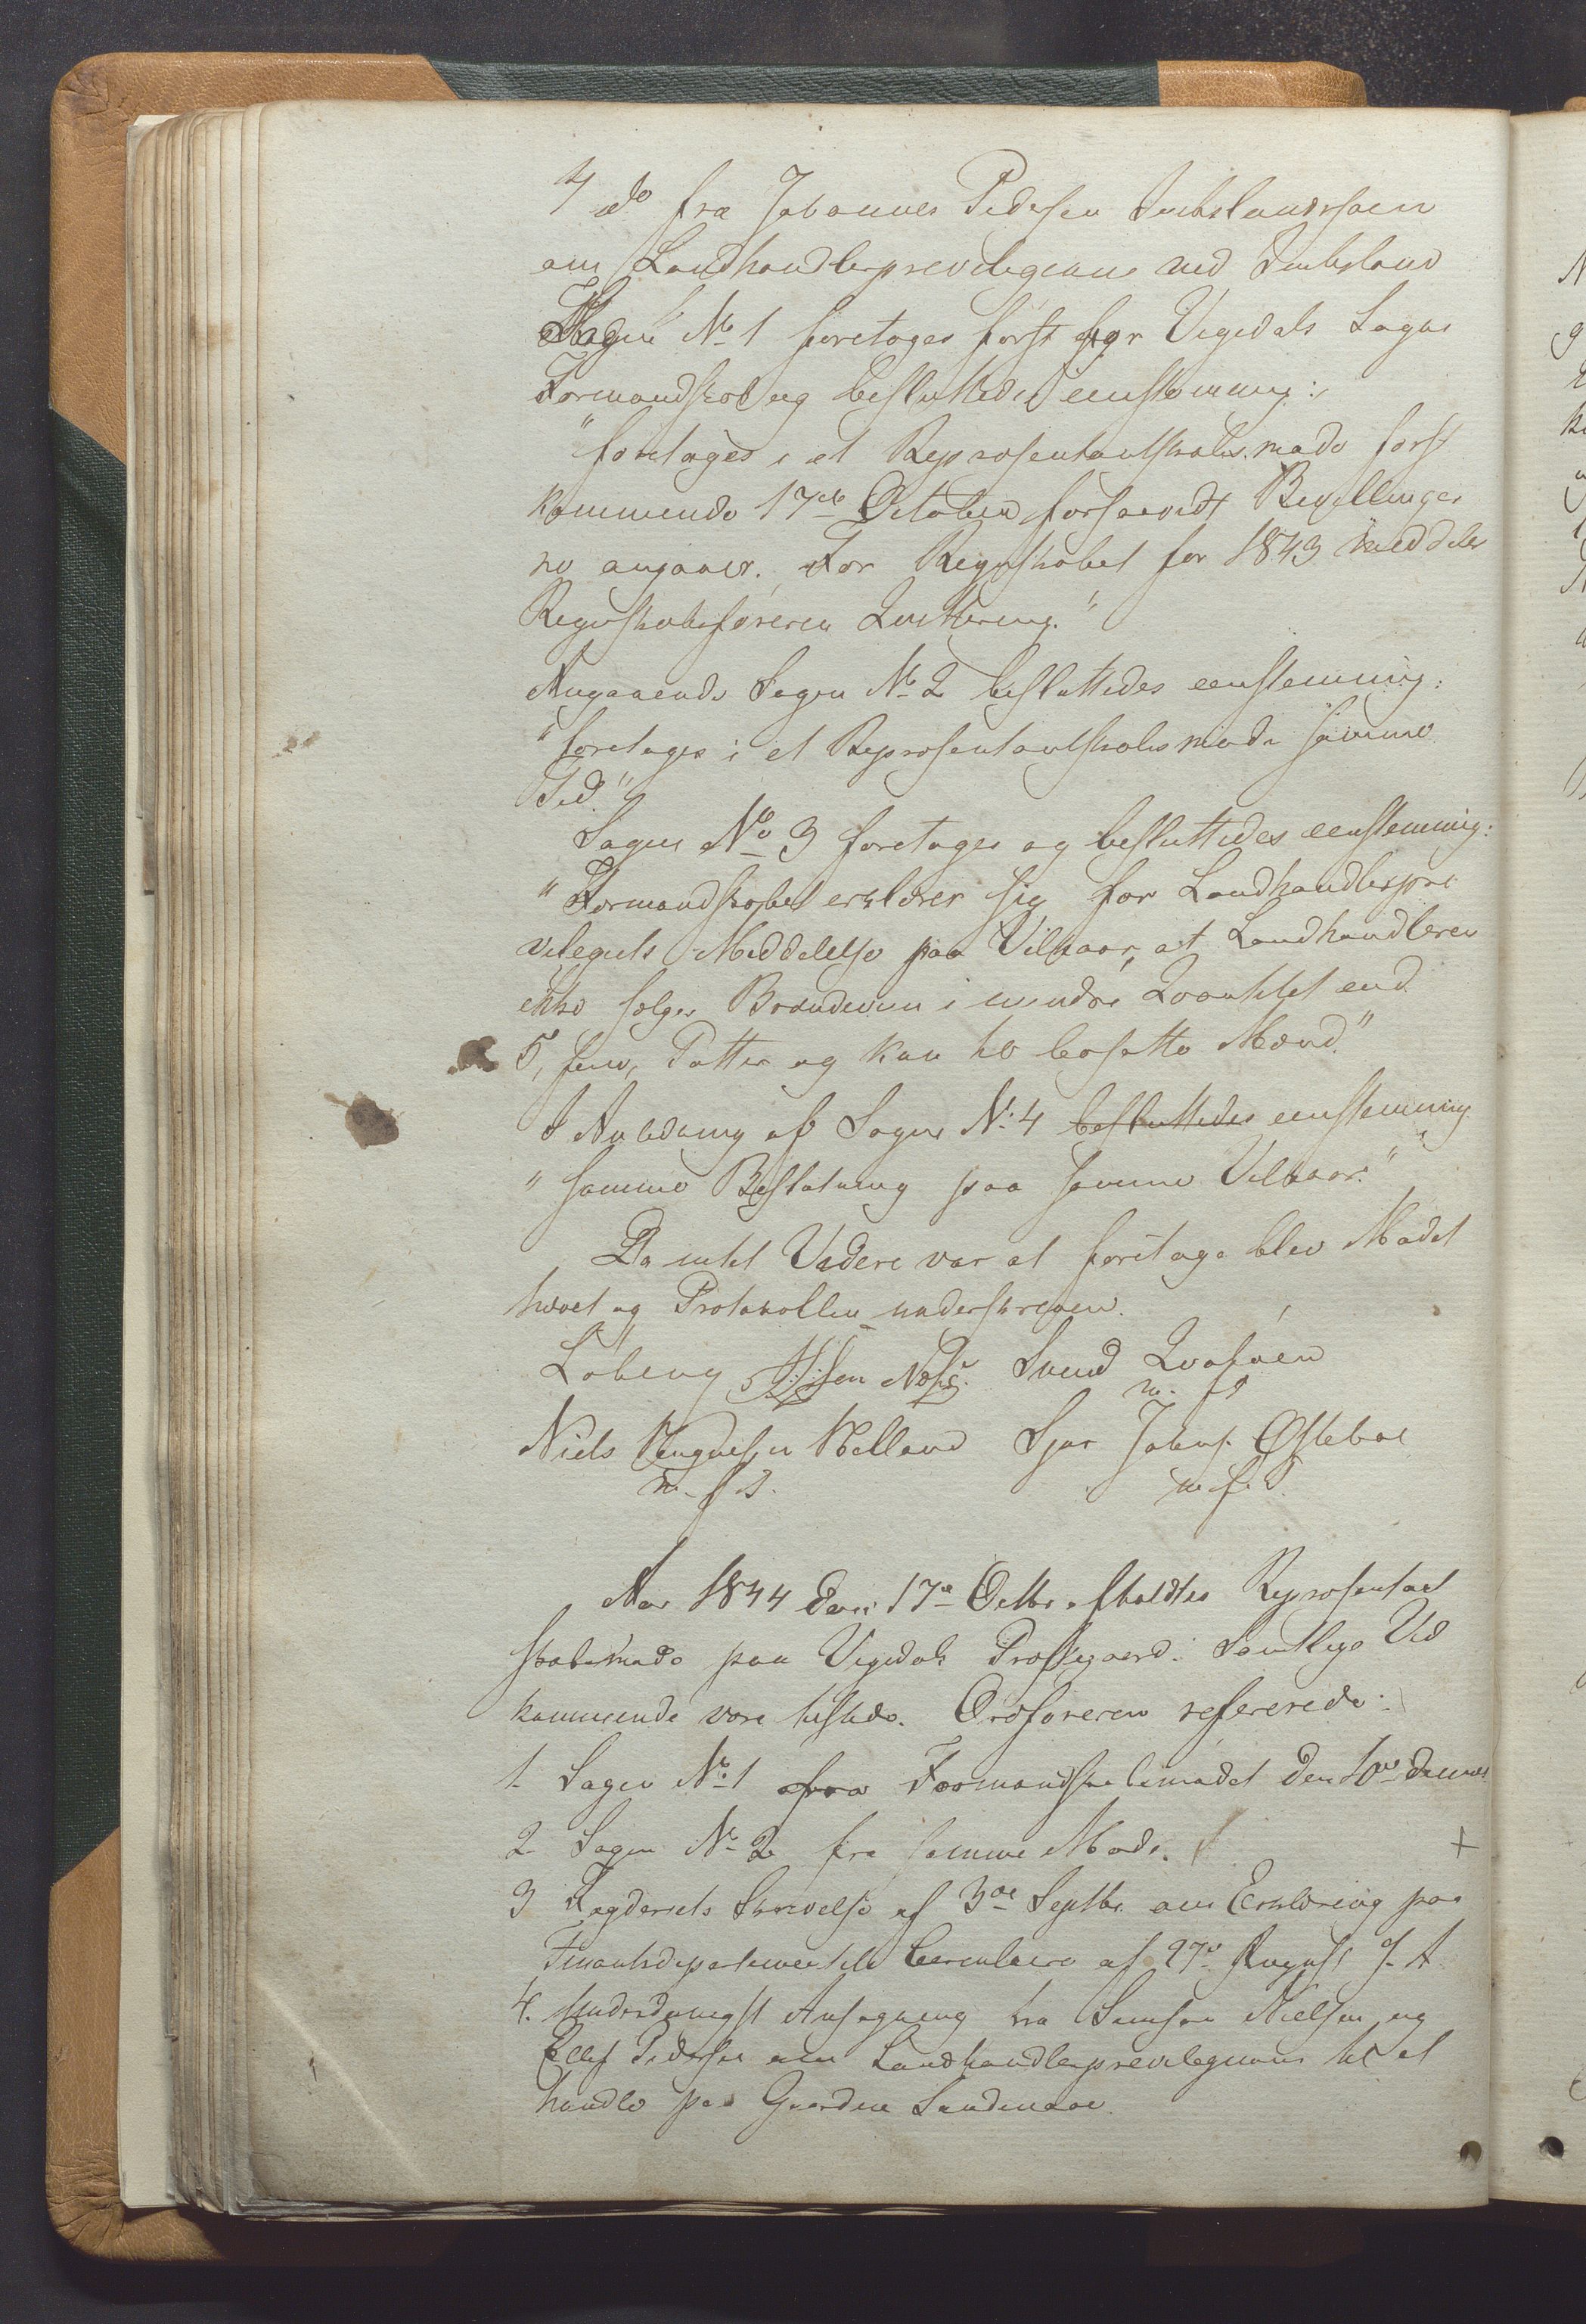 4 do fra Johannes Pedersen Imbslandsøen
om Landhandlerprevilegium ved Imbsland
Sagen No 1 foretoges først for Vigedals Sogns
Formandskab og besluttedes eenstemmig:
"foretages i et Repræsentantskabsmøde først
kommende 17de October forsaavidt Bevillinger
ne angaaer. For Regnskabet for 1843 meddeles
Regnskabsføreren Qvittering."
Angaaende Sagen No 2 besluttedes eenstemmig:
"foretages i et Repræsentantskabsmøde samme
Tid."
Sagen No 3 foretoges og besluttedes eenstemmig:
"Formandskabet erklærer sig for Landhandlerpri
vilegiets Meddelelse paa Vilkaar, at Landhandleren
ikke sælger Brændeviin i mindre Qvantitet end
5, fem, Potter og kun til bosatte Mænd."
I Anledning af Sagen No 4 besluttedes eenstemmig
"samme Beslutning paa samme Vilkaar."
Da intet Videre var at foretage blev Mødet
hævet og Protokollen underskreven.
Løberg Svend Qvaføen
m. f P
Niels Helland Sjur Johns. Østebøe
m. f P. m. f. P
Aar 1844 den 17de Octbr. afholdtes Repræsentant
skabsmøde paa Vigedals Præstegaard. Samtlige Ved
kommende vare tilstede. Ordføreren refererede:
1. Sagen No 1 fra Formandskabsmødet den 10de dennes
2 Sagen No 2 fra samme Møde.
3 Fogderiets Skrivelse af 3die Septbr. om Erklæring paa
Finantsdepartementets Circulaire af 27de August d. A.
4. Underdanigst Ansøgning fra Samson Nielsen og
Ellef Pedersen om Landhandlerprevilegium til at
handle paa Gaarden Sandenæe